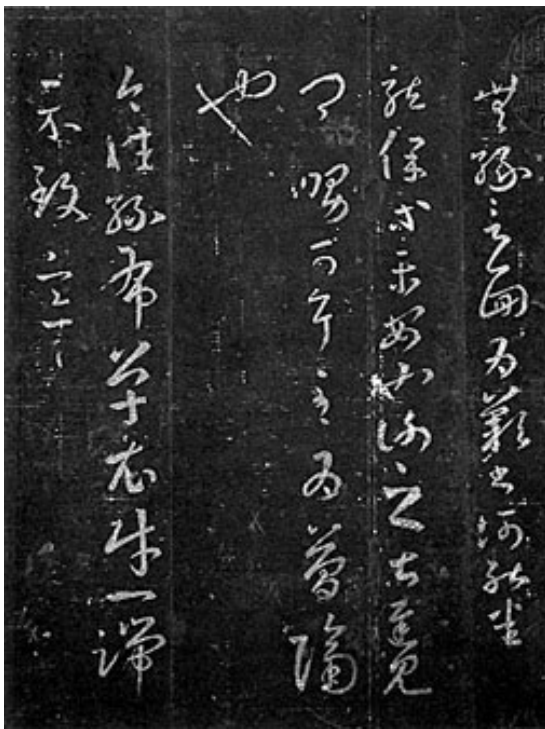 無緣言面為歎書何能悉
龍保等平安也謝之甚遲見
卿舅可耳至為簡隔
也
今往絲布單衣財一端
示致意